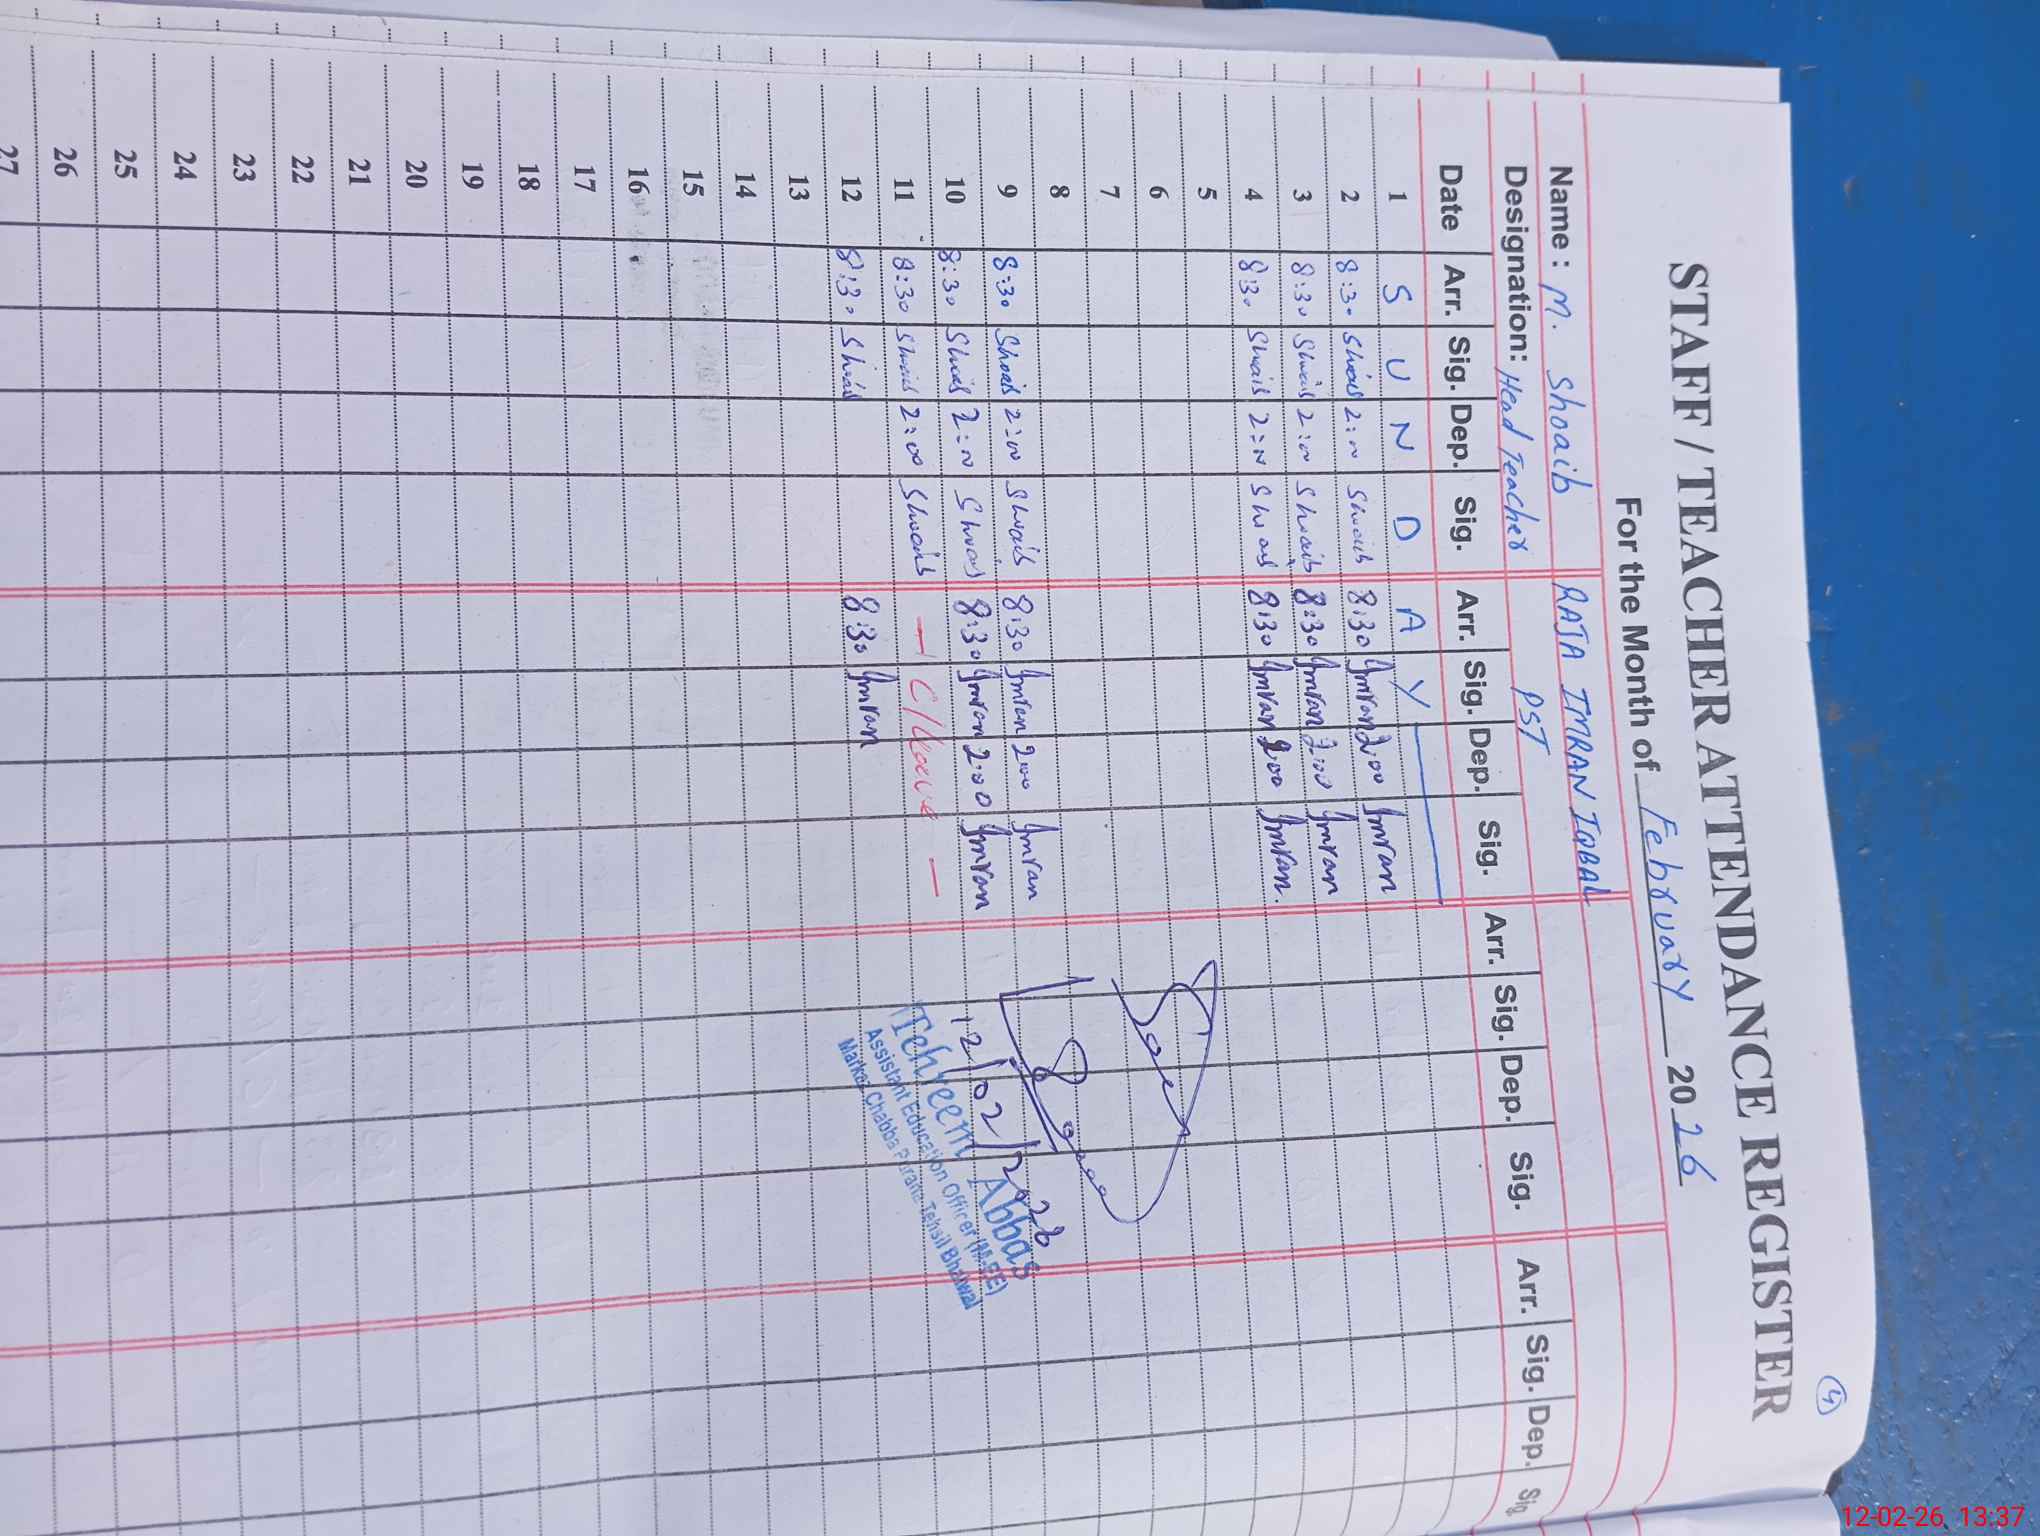 4
STAFF / TEACHER ATTENDANCE REGISTER
For the Month of February 2026
Name : M. Shoaib RAJA IMRAN IQBAL
Designation: Head Teacher PST
Date Arr. Sig. Dep. Sig. Arr. Sig. Dep. Sig. Arr. Sig. Dep. Sig. Arr. Sig. Dep. Sig
1 S U N D A Y
2 8:30 Shoaib 2:00 Shoaib 8:30 Imran 2:00 Imran
3 8:30 Shoaib 2:00 Shoaib 8:30 Imran 2:00 Imran
4 8:30 Shoaib 2:00 Shoaib 8:30 Imran 2:00 Imran.
5
6
7
8
9 8:30 Shoaib 2:00 Shoaib 8:30 Imran 2:00 Imran
10 8:30 Shoaib 2:00 Shoaib 8:30 Imran 2:00 Imran
11 8:30 Shoaib 2:00 Shoaib — C/Leave —
12 8:30 Shoaib 8:30 Imran
12/02/2026
Tehreem Abbas
Assistant Education Officer (M.EE)
Markaz Chabba Purana Tehsil Bhalwal
13
14
15
16
17
18
19
20
21
22
23
24
25
26
27
12-02-26, 13:37